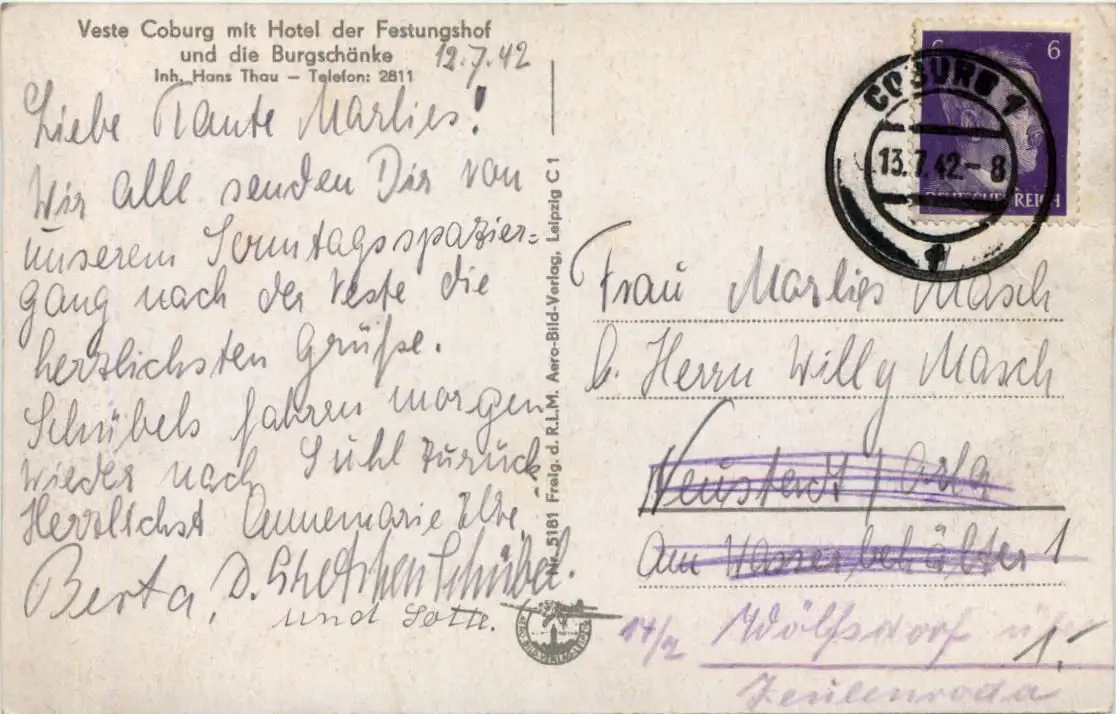 Veste Coburg mit Hotel der Festungshof
und die Burgschänke
Inh. Hans Thau – Telefon: 2811
12.7.42
Liebe Tante Marlies!
Wir alle senden Dir von
unserem Sonntagsspazier=
gang nach der Veste die
herzlichsten Grüße.
Schübels fahren morgen
wieder nach Suhl zurück.
Herzlichst Annemarie
Berta, D. Gretchen Schübel.
und Lotte.
Nr. 5181 Freig. d. R.L.M. Aero-Bild-Verlag, Leipzig C 1
AERO-BILD-VERLAG-LEIPZIG
6 6
DEUTSCHES REICH
COBURG 1
13.7.42.-8
Frau Marlies Masch
b. Herrn Willy Masch
Neustadt / Orla
Am Wasserbehälter 1
14/7 Wolfsdorf über
Zeulenroda
1.-